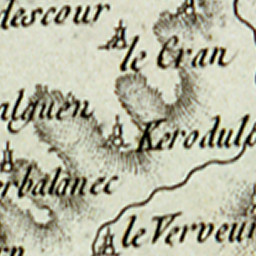 descour
le Cran
alguen
Kerodulo
erbalanec
le Verveur